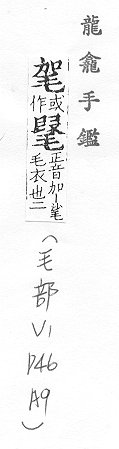 龍龕手鑑
毠或作正音加丨㲚毛衣也二
(毛部 V1 P46 A9)